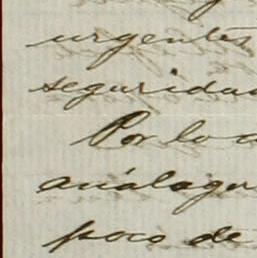 urgentes
seguridad
Por lo
análogas
poco de